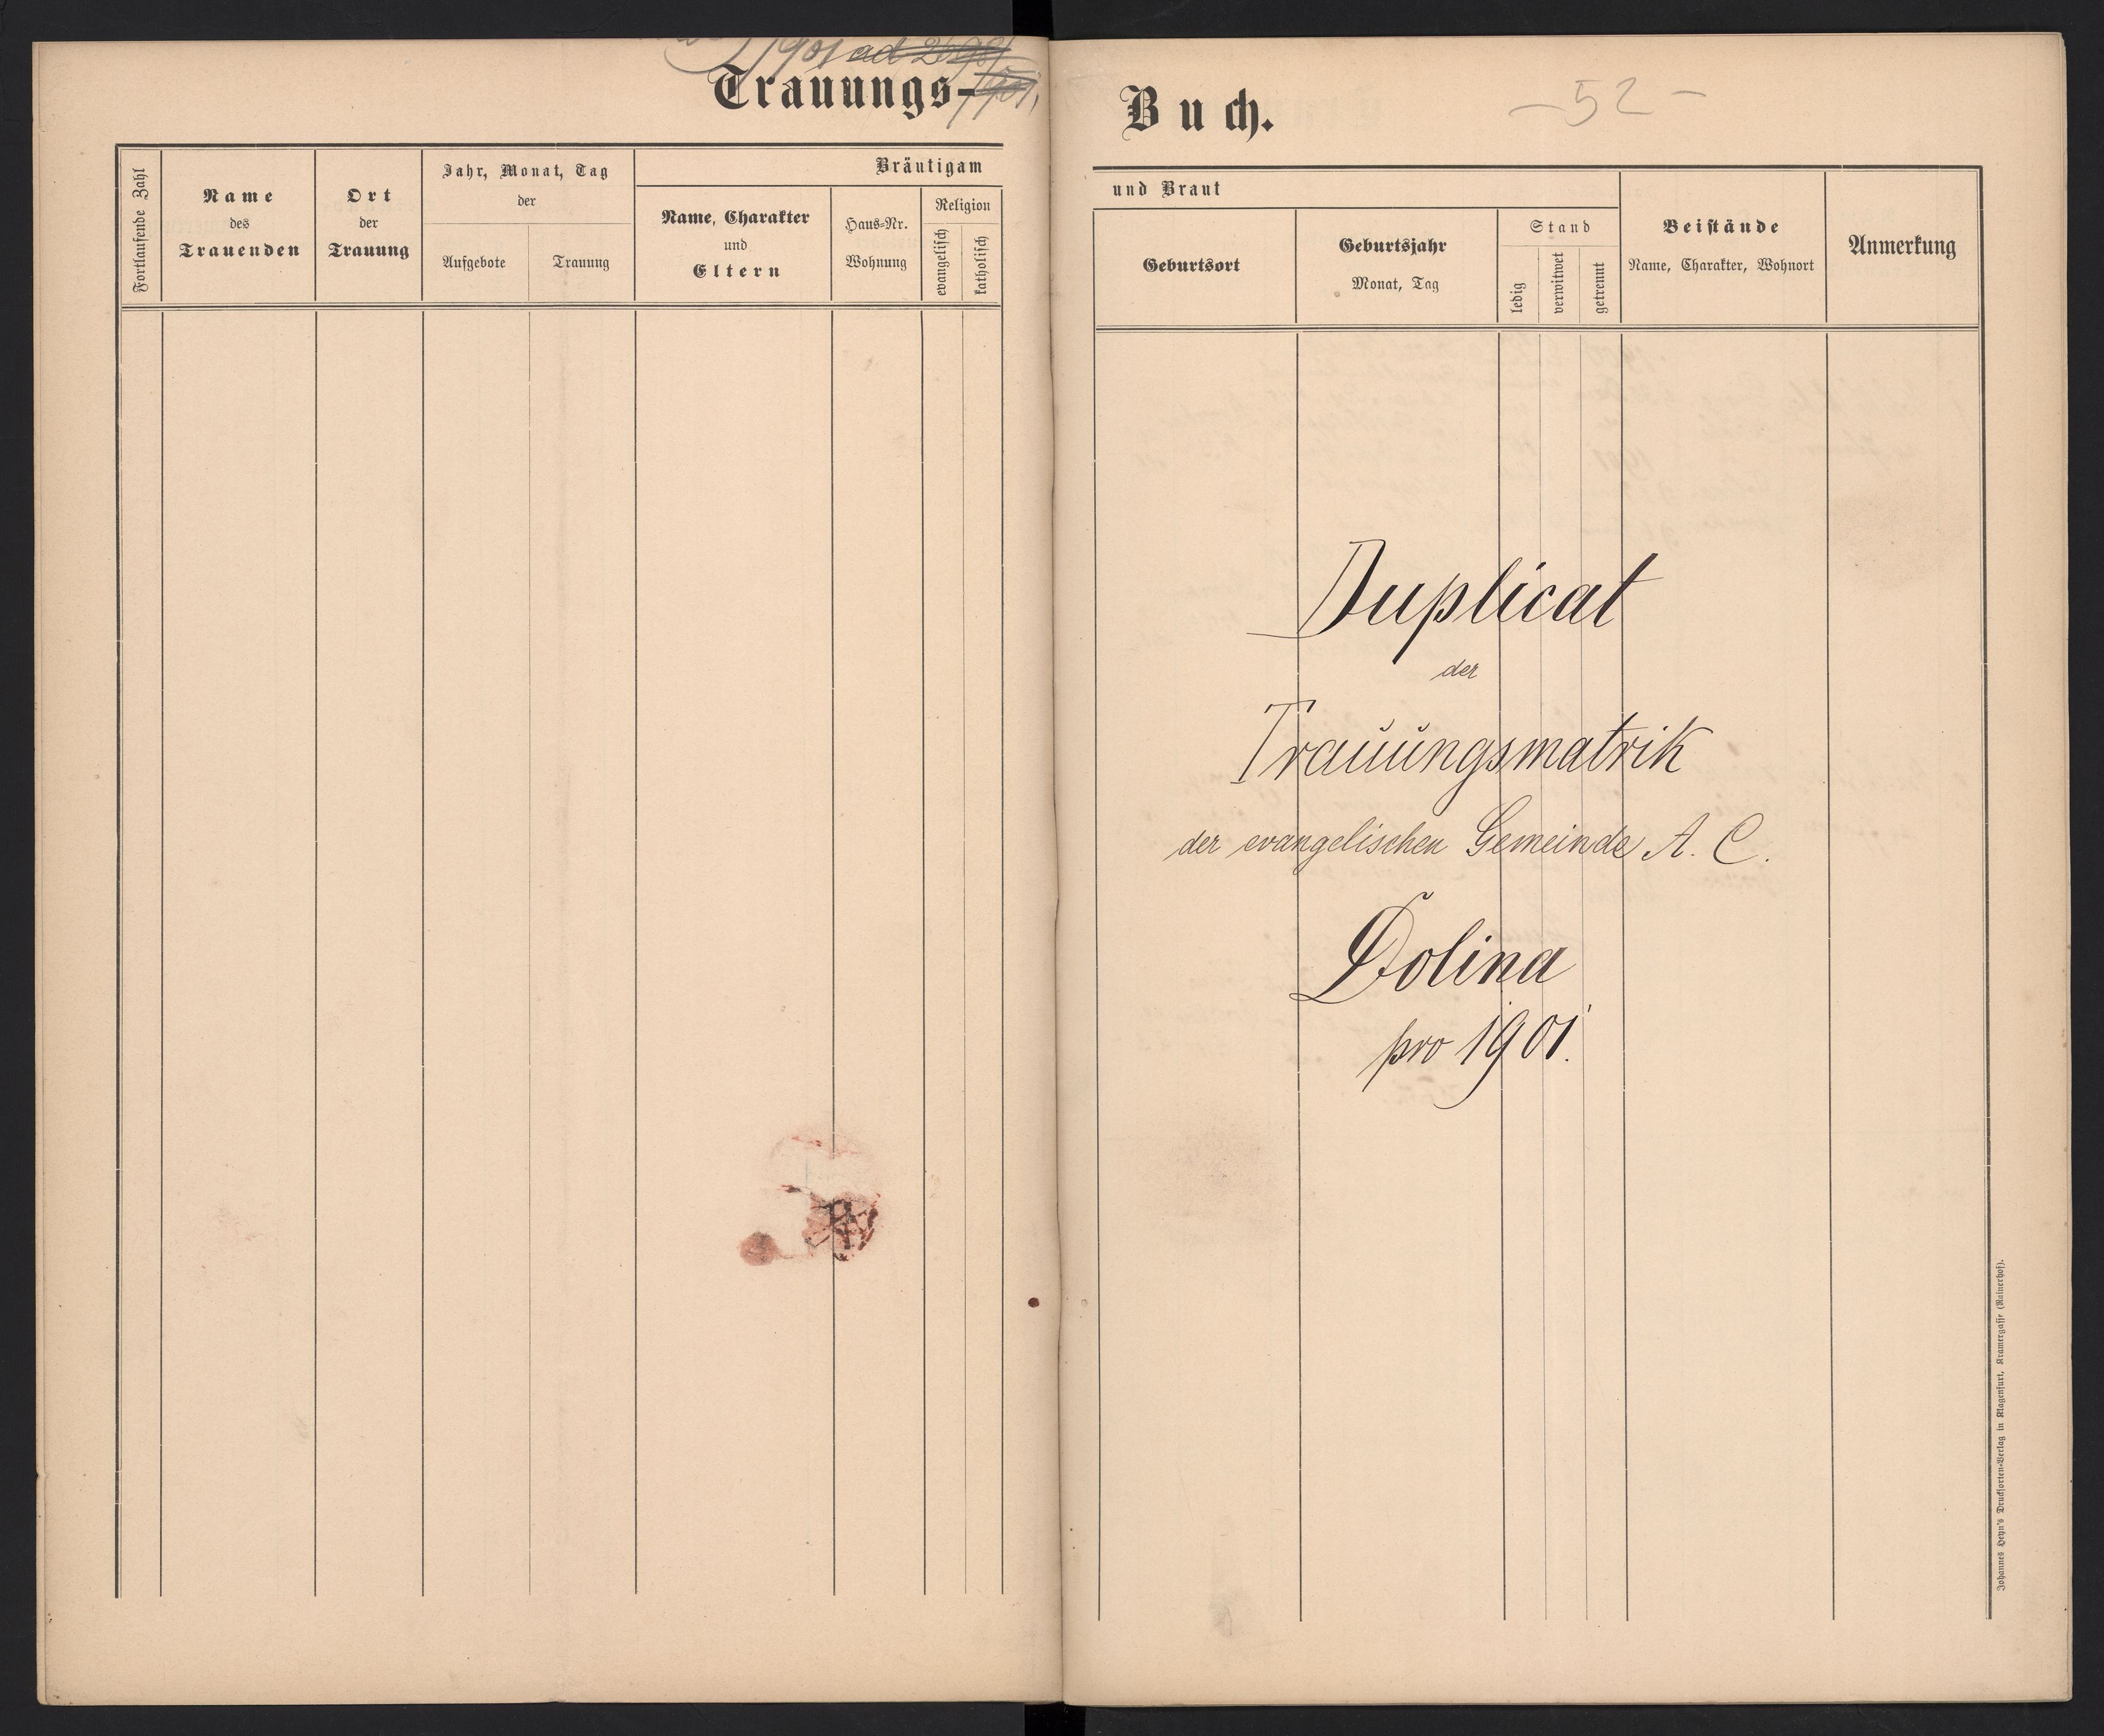 1901 ad
Trauungs-
Fortlaufende Zahl
Name
des
Trauenden
Ort
der
Trauung
Jahr, Monat, Tag
der
Aufgebote
Trauung
Bräutigam
Name, Charakter
und
Eltern
Haus-Nr.
Wohnung
Religion
evangelisch
katholisch
Buch.
- 52 -
und Braut
Geburtsort
Geburtsjahr
Monat, Tag
Stand
ledig
verwitwet
getrennt
Beistände
Name, Charakter, Wohnort
Anmerkung
Duplicat
der
Trauungsmatrik
der evangelischen Gemeinde A. C.
Dolina
pro 1901.
Johannes Heyn's Drucksorten-Verlag in Klagenfurt, Kramergasse (Rainerhof).